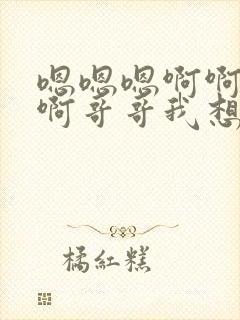 嗯嗯嗯啊啊
啊哥哥我想
橘紅糕